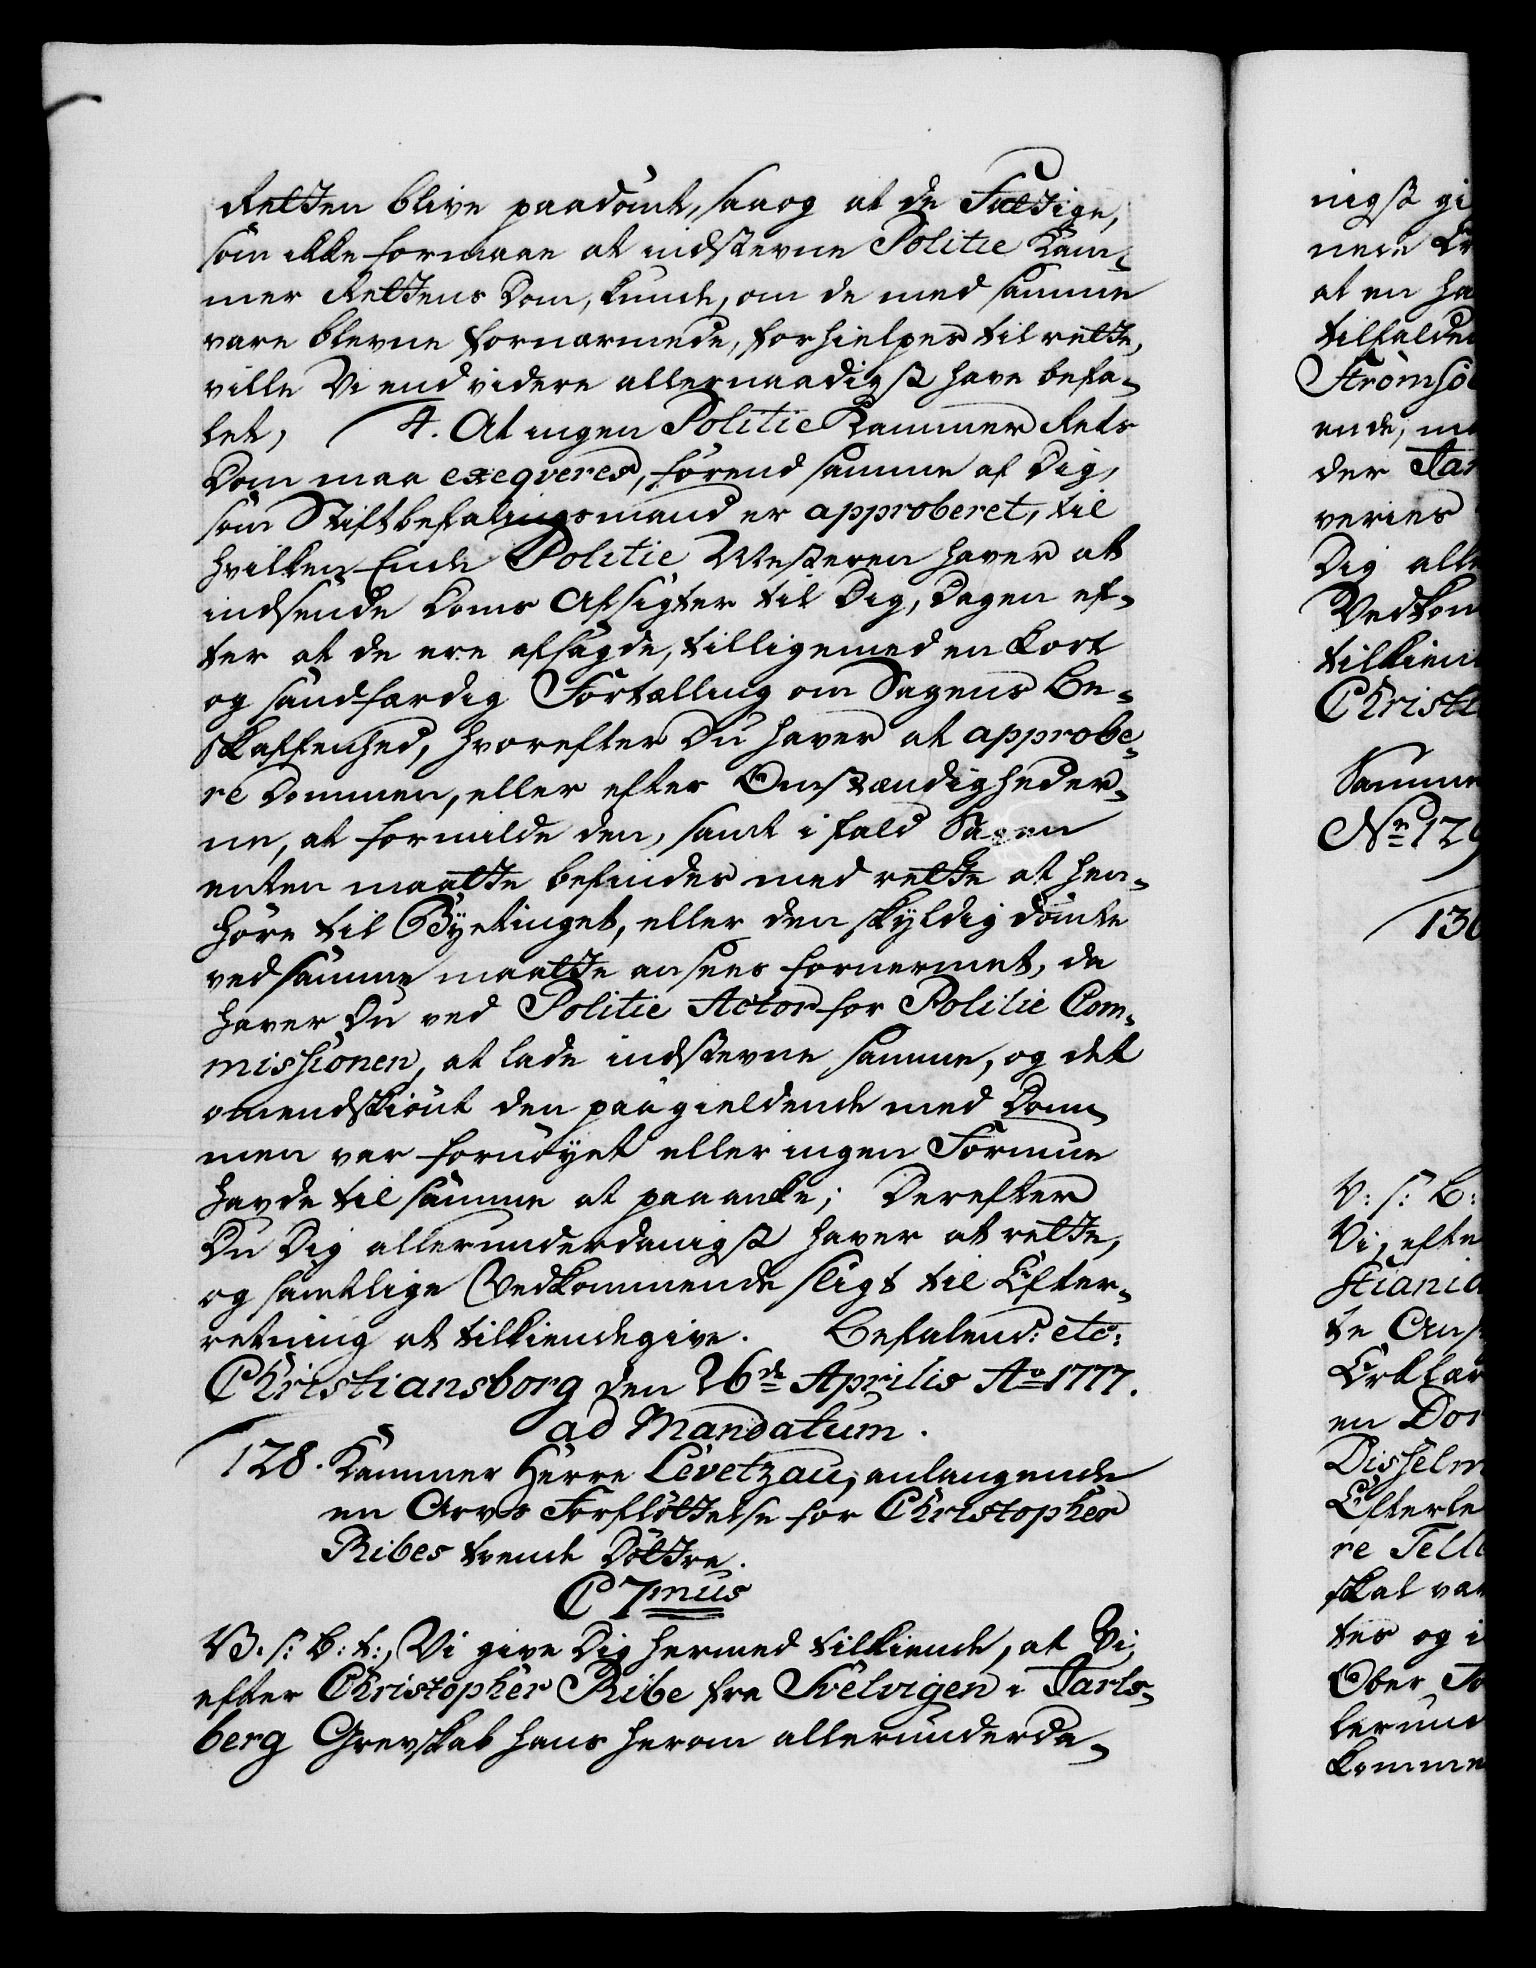 Retten blive paadømt, saa og at de Fattige,
som ikke formaae at indstevne Politie Kam-
mer Rettens Dom, kunde, om de med samme
vare blevne fornærmede, forhielpes til rette,
ville Vi end videre allernaadigst have befa-
let, 4. At ingen Politie Kammer Rets
Dom maa exeqveres, førend samme af Dig,
som Stiftbefalingsmand er approberet, til
hvilken Ende Politie Mesteren haver at
indsende Doms Afsigter til Dig, Dagen ef-
ter at de ere afsagde, tilligemed en kort
og sandfærdig Fortælling om Sagens Be-
skaffenhed, hvorefter Du haver at approbe-
re Dommen, eller efter Omstændigheder-
ne, at formilde den, samt i fald Sagen
enten maatte befindes med rette at hen-
høre til Byetinget, eller den skyldig dømte
ved samme maatte ansees fornermet, da
haver Du ved Politie Actor for Politie Com-
missionen, at lade indstevne samme, og det
omendskiønt den paagieldende med Dom-
men var fornøyet eller ingen Formue
havde til samme at paaanke; Derefter
Du Dig allerunderdanigst haver at rette,
og samtlige Vedkommende sligt til Efter-
retning at tilkiendegive. Befalend: etc:
Christiansborg den 26de Aprilis Ao 1777.
ad Mandatum.
128. Kammer Herre Levetzau, anlangende
en Arvs Forflyttelse for Christopher
Ribes tvende Døttre.
C 7mus
V. s: b: t:, Vi give Dig hermed tilkiende, at Vi,
efter Christopher Ribe fra Svelvigen i Jarls-
berg Grevskab hans herom allerunderda-
nigst gi
at en ha
tilfalden
Strømsø
ende, m
der Jar
veries
Dig alle
Vedkom
tilkien
Christi
Samme
No 129
130
V: s: b:
Vi, efte
stiania
te Ans
Erklær
en Do
Disselm
Efterle
re Tell
skal vær
tes og i
Ober
lerund
komme